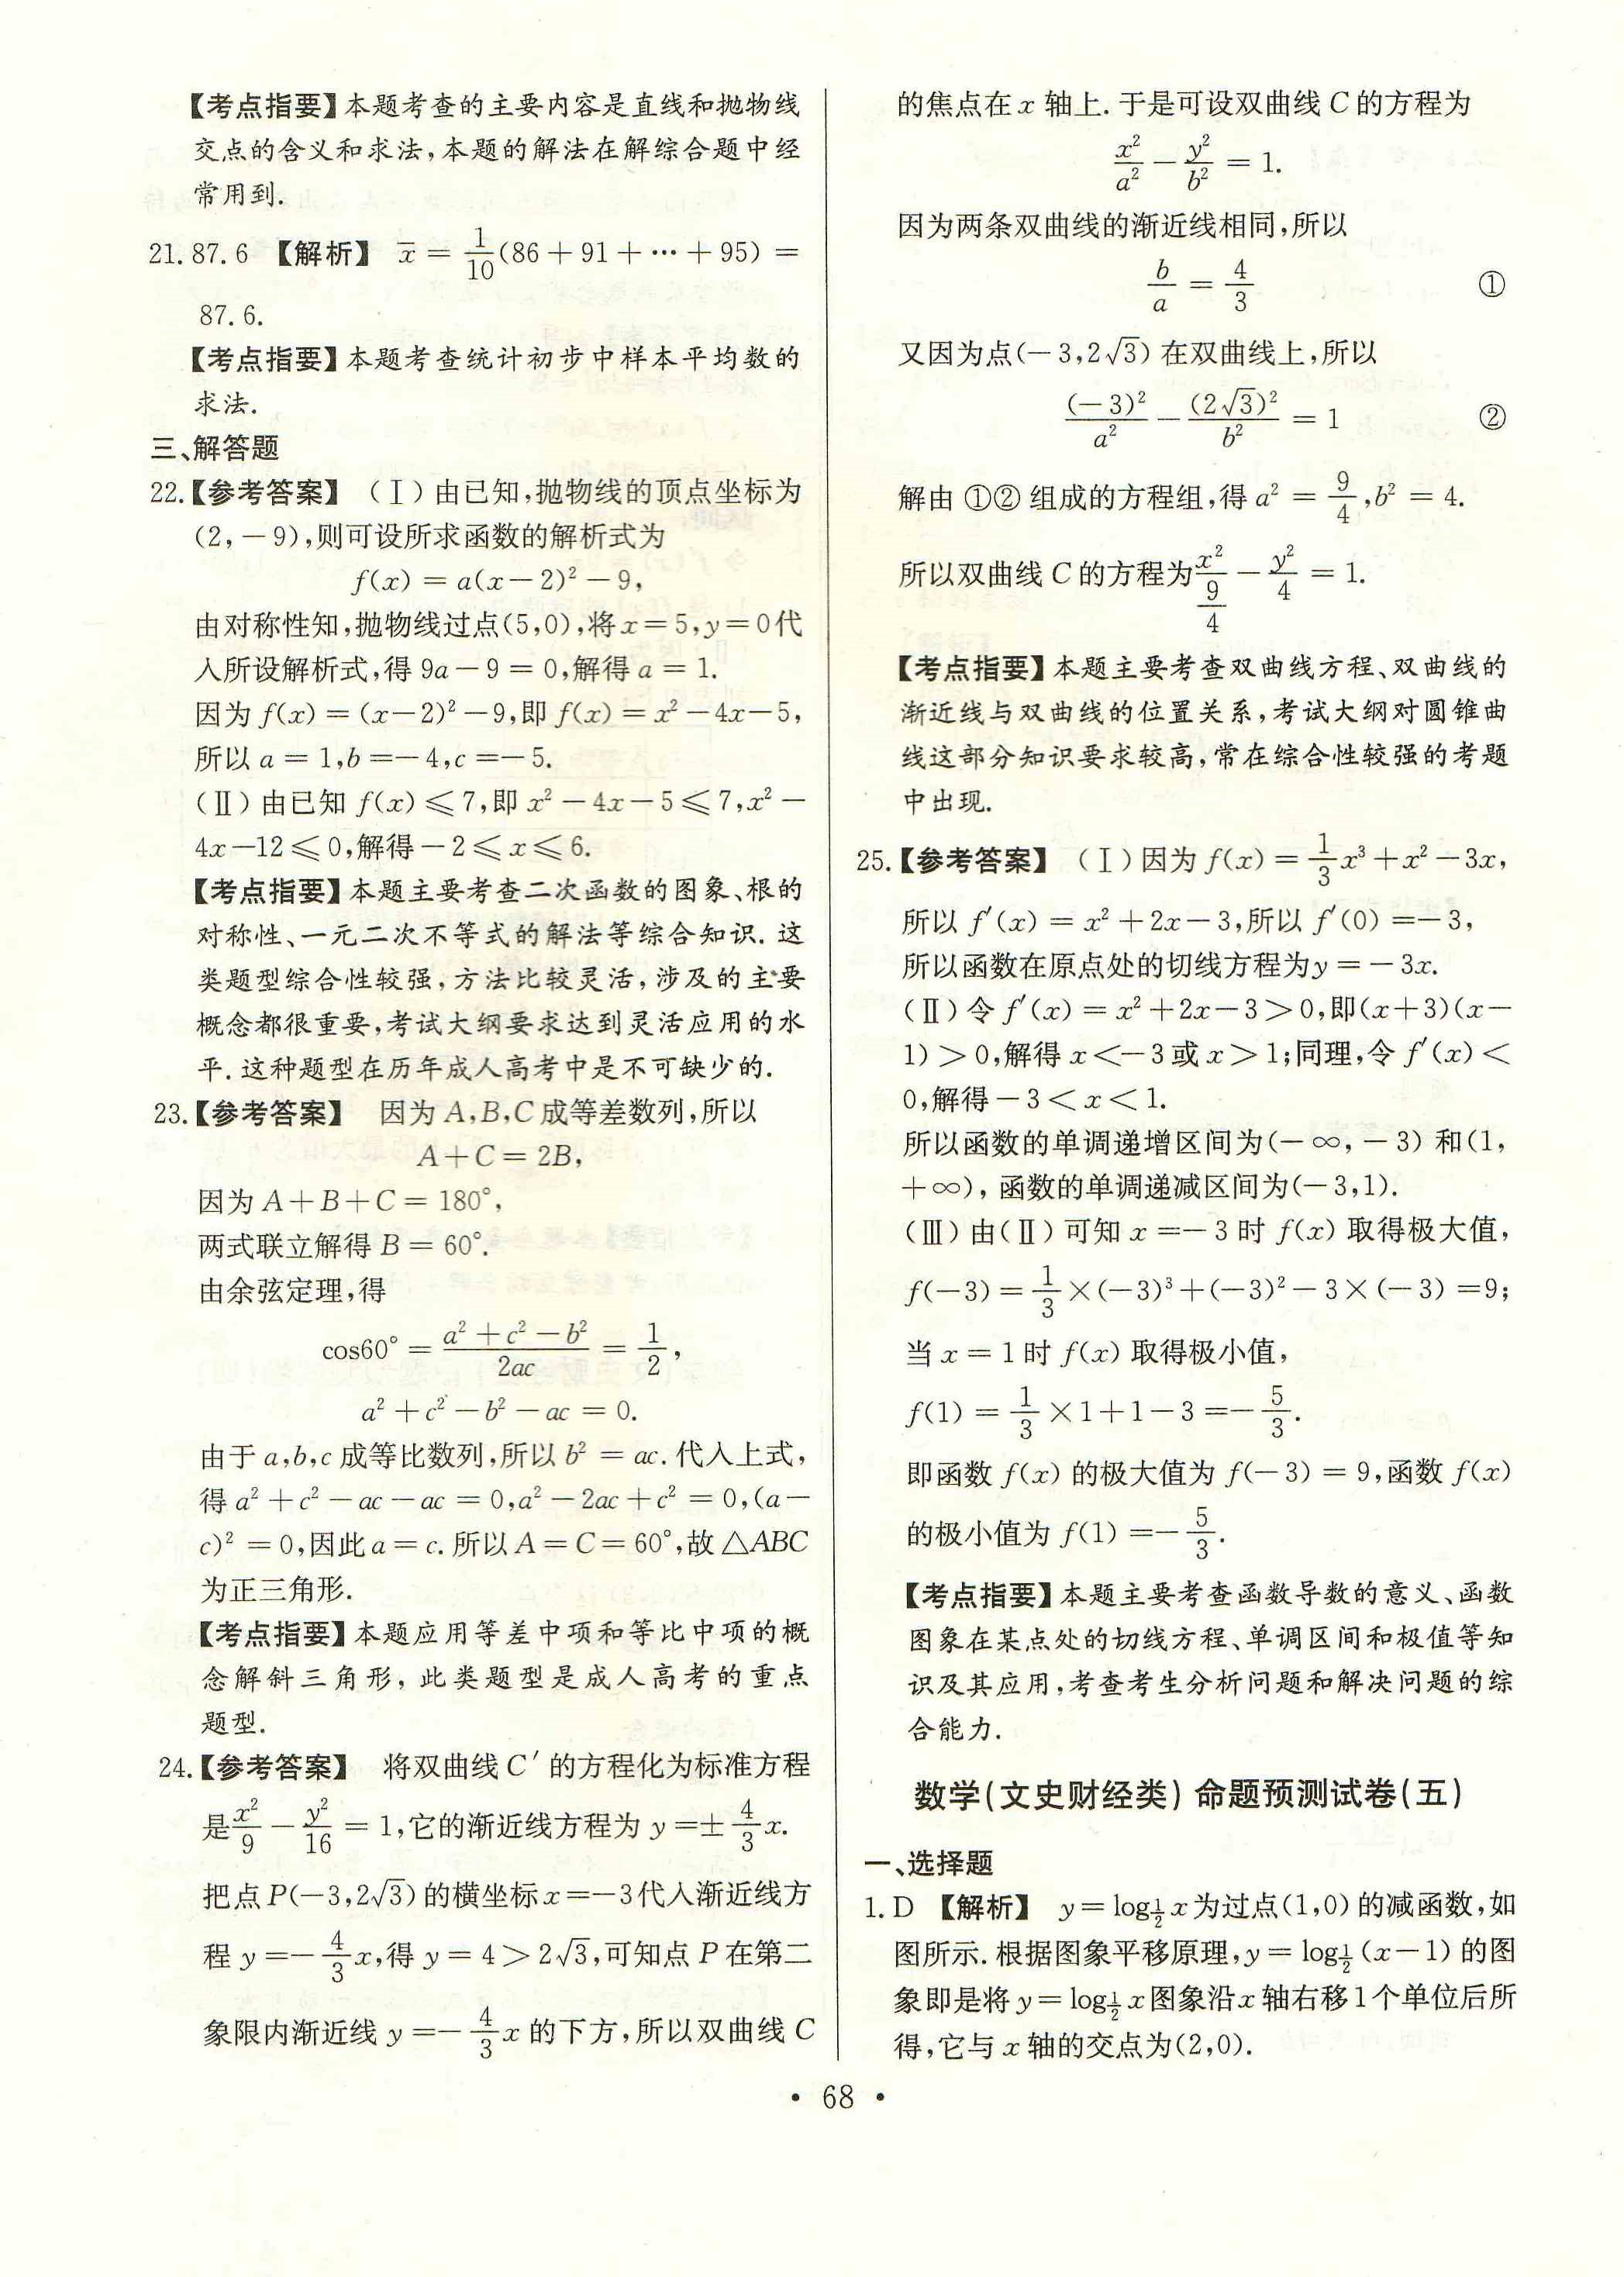 【考点指要】本题考查的主要内容是直线和抛物线
交点的含义和求法,本题的解法在解综合题中经
常用到.
21. 87.6 【解析】 x̄ = 1/10(86+91+…+95) =
87.6.
【考点指要】本题考查统计初步中样本平均数的
求法.
三、解答题
22.【参考答案】 (Ⅰ)由已知,抛物线的顶点坐标为
(2,-9),则可设所求函数的解析式为
f(x) = a(x-2)² -9,
由对称性知,抛物线过点(5,0),将x=5,y=0代
入所设解析式,得 9a-9 = 0,解得 a = 1.
因为 f(x) = (x-2)² -9,即 f(x) = x² -4x-5,
所以 a = 1,b =-4,c =-5.
(Ⅱ)由已知 f(x) ≤ 7,即 x² -4x-5 ≤ 7,x² -
4x-12 ≤ 0,解得-2 ≤ x ≤ 6.
【考点指要】本题主要考查二次函数的图象、根的
对称性、一元二次不等式的解法等综合知识.这
类题型综合性较强,方法比较灵活,涉及的主要
概念都很重要,考试大纲要求达到灵活应用的水
平.这种题型在历年成人高考中是不可缺少的.
23.【参考答案】 因为 A,B,C 成等差数列,所以
A+C = 2B,
因为 A+B+C = 180°,
两式联立解得 B = 60°.
由余弦定理,得
cos60° = (a² +c² -b²)/2ac = 1/2,
a² +c² -b² -ac = 0.
由于 a,b,c 成等比数列,所以 b² = ac.代入上式,
得 a² +c² -ac-ac = 0,a² -2ac+c² = 0,(a-
c)² = 0,因此 a = c.所以 A = C = 60°,故 △ABC
为正三角形.
【考点指要】本题应用等差中项和等比中项的概
念解斜三角形,此类题型是成人高考的重点
题型.
24.【参考答案】 将双曲线 C′ 的方程化为标准方程
是 x²/9 - y²/16 = 1,它的渐近线方程为 y =± 4/3 x.
把点 P(-3,2√3) 的横坐标 x =-3代入渐近线方
程 y =- 4/3 x,得 y = 4 > 2√3,可知点 P 在第二
象限内渐近线 y =- 4/3 x 的下方,所以双曲线 C
的焦点在 x 轴上.于是可设双曲线 C 的方程为
x²/a² - y²/b² = 1.
因为两条双曲线的渐近线相同,所以
b/a = 4/3 ①
又因为点(-3,2√3) 在双曲线上,所以
(-3)²/a² - (2√3)²/b² = 1 ②
解由 ①② 组成的方程组,得 a² = 9/4,b² = 4.
所以双曲线 C 的方程为 x²/(9/4) - y²/4 = 1.
【考点指要】本题主要考查双曲线方程、双曲线的
渐近线与双曲线的位置关系,考试大纲对圆锥曲
线这部分知识要求较高,常在综合性较强的考题
中出现.
25.【参考答案】 (Ⅰ)因为 f(x) = 1/3 x³ +x² -3x,
所以 f′(x) = x² +2x-3,所以 f′(0) =-3,
所以函数在原点处的切线方程为y =-3x.
(Ⅱ)令 f′(x) = x² +2x-3 > 0,即(x+3)(x-
1) > 0,解得 x <-3 或 x > 1;同理,令 f′(x) <
0,解得-3 < x < 1.
所以函数的单调递增区间为(-∞,-3) 和(1,
+∞),函数的单调递减区间为(-3,1).
(Ⅲ)由(Ⅱ)可知 x =-3 时 f(x) 取得极大值,
f(-3) = 1/3 ×(-3)³ +(-3)² -3×(-3) =9;
当 x = 1 时 f(x) 取得极小值,
f(1) = 1/3 ×1+1-3 =- 5/3.
即函数 f(x) 的极大值为 f(-3) = 9,函数 f(x)
的极小值为 f(1) =- 5/3.
【考点指要】本题主要考查函数导数的意义、函数
图象在某点处的切线方程、单调区间和极值等知
识及其应用,考查考生分析问题和解决问题的综
合能力.
数学(文史财经类)命题预测试卷(五)
一、选择题
1. D 【解析】 y = log½ x 为过点(1,0) 的减函数,如
图所示.根据图象平移原理,y = log½ (x-1) 的图
象即是将 y = log½ x 图象沿 x 轴右移1个单位后所
得,它与 x 轴的交点为(2,0).
• 68 •